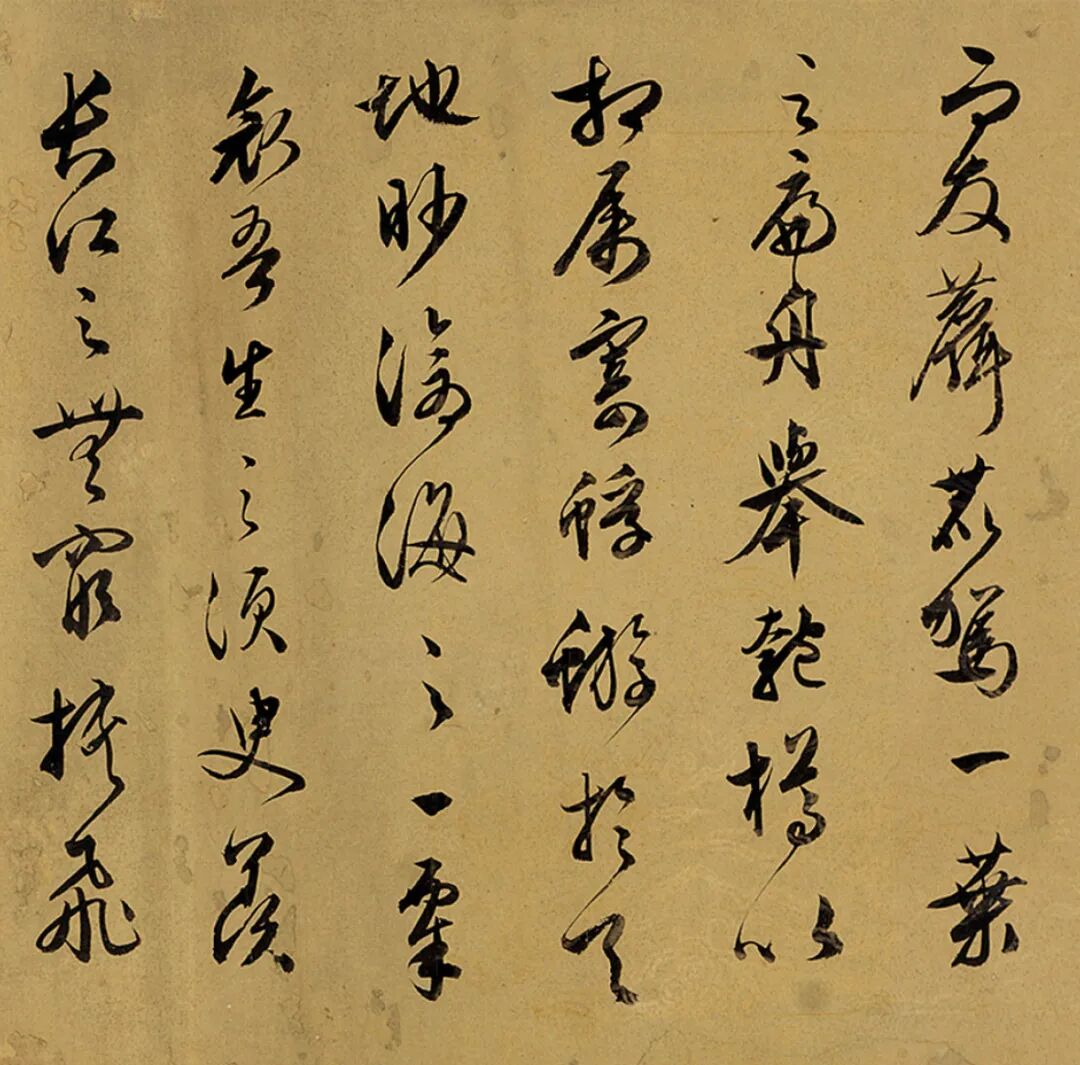 而友麋鹿駕一葉
之扁舟舉匏樽以
相屬寄蜉蝣於天
地眇滄海之一粟
哀吾生之須臾羨
長江之無窮挾飛